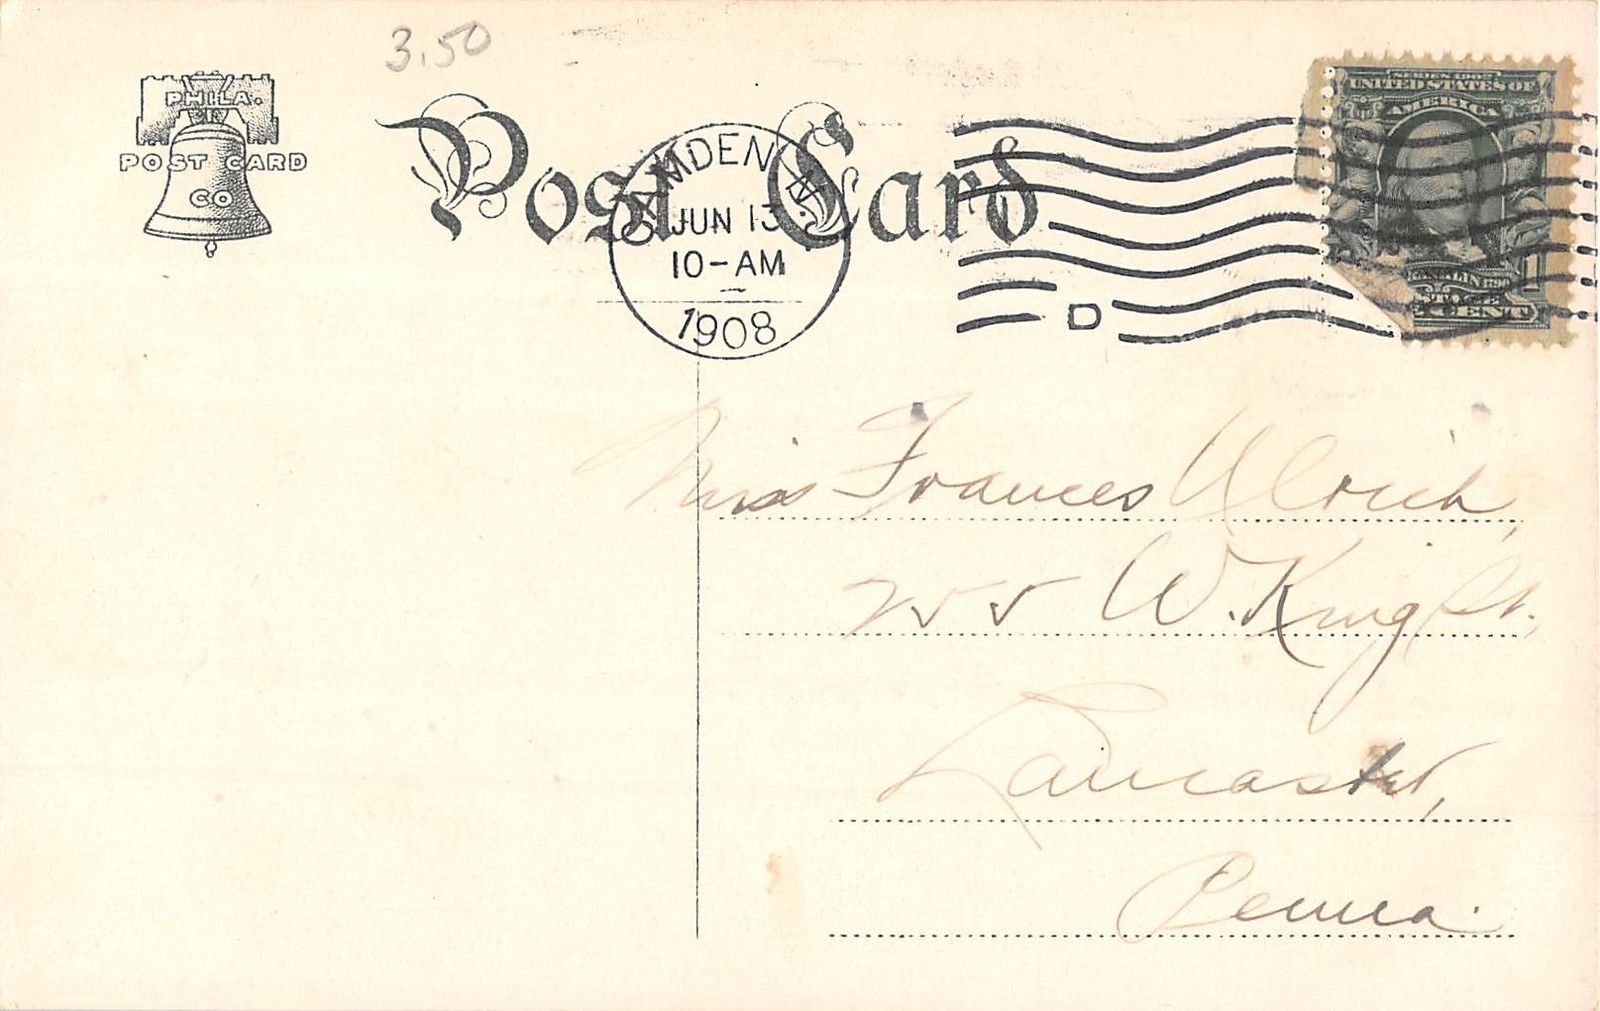 3.50
PHILA.
POST CARD
CO
Post Card
CAMDEN, N.
JUN 13
10-AM
1908
D
SERIES 1902
UNITED STATES OF
AMERICA
1
CENT
Miss Frances Ulrich,
255 W. King St.,
Lancaster,
Penna.